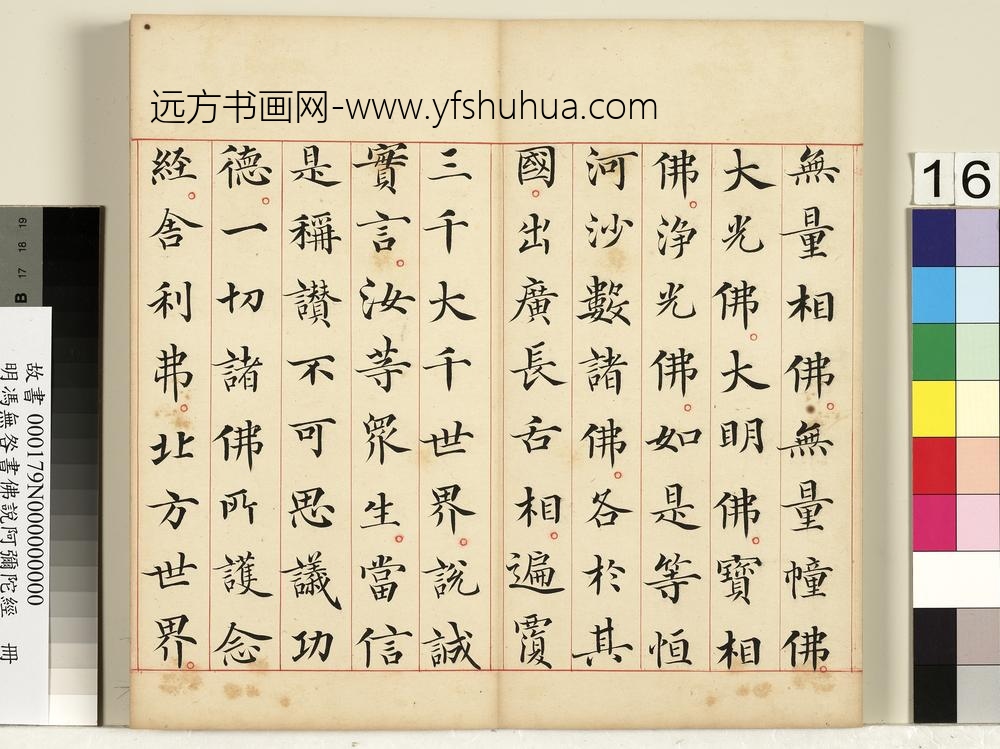 远方书画网-www.yfshuhua.com
無量相佛。無量幢佛。
大光佛。大明佛。寶相
佛。淨光佛。如是等恒
河沙數諸佛。各於其
國。出廣長舌相。遍覆
三千大千世界。說誠
實言。汝等眾生。當信
是稱讚不可思議功
德。一切諸佛所護念
經。舍利弗。北方世界。
16
19
18
17
B
故書 000179N000000000
明馮無咎書佛說阿彌陀經 冊